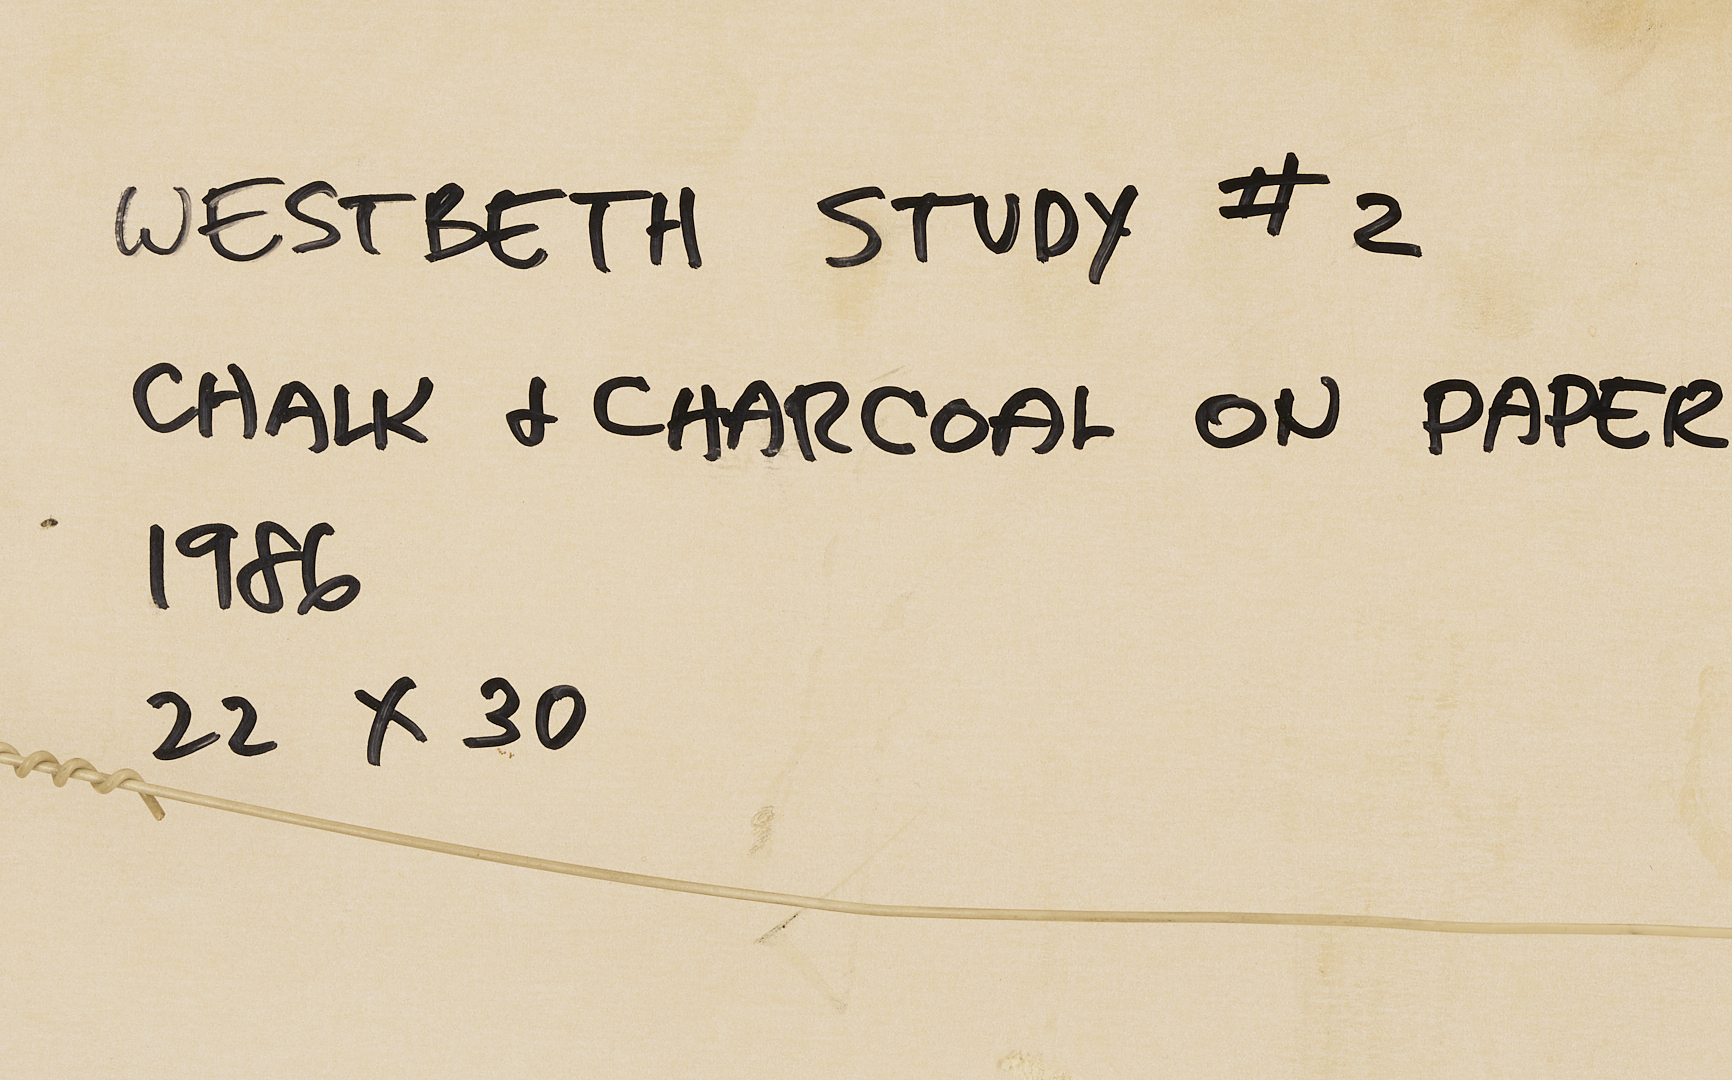 WESTBETH STUDY #2
CHALK & CHARCOAL ON PAPER
1986
22 X 30